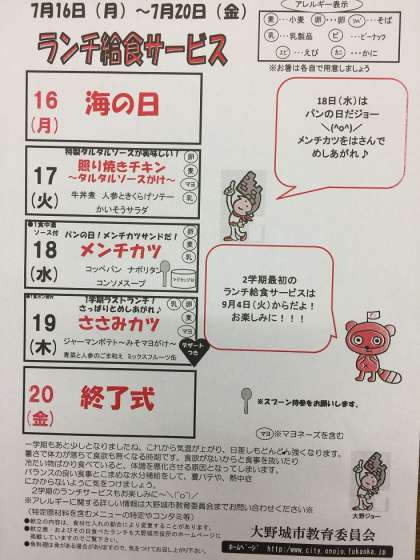 7月16日（月）～7月20日（金）
ランチ給食サービス
アレルギー表示
麦…小麦 卵…卵 …そば
乳…乳製品 ピ…ピーナッツ
エビ…えび カニ…かに
※お箸は各自で用意しましょう
16
（月）
海の日
18日（水）は
パンの日だジョー
＼(^o^)／
メンチカツをはさんで
めしあがれ♪
17
（火）
特製タルタルソースが美味しい！
照り焼きチキン
～タルタルソースがけ～
牛丼煮 人参ときくらげソテー
かいそうサラダ
卵
麦
マヨ
乳
18
（水）
ソース付
パンの日！メンチカツサンドだ！
メンチカツ
コッペパン ナポリタン
コンソメスープ
2学期最初の
ランチ給食サービスは
9月4日（火）からだよ！
お楽しみに！！！
19
（木）
1学期ラストランチ！
さっぱりとめしあがれ♪
ささみカツ
ジャーマンポテト～みそマヨがけ～
青菜と人参のごま和え ミックスフルーツ缶
デザート
つき
20
（金）
終了式
※スプーン持参をお願いします。
マヨ ※マヨネーズを含む
一学期もあと少しとなりましたね。これから気温が上がり、日差しもどんどん強くなります。
暑さで体力が落ちて食欲も無くなる時期です。食欲がないからと食事を抜いたり
冷たい物ばかり食べていると、体調を悪化させる原因となってしまいます。
バランスの良い食事とこまめな水分補給をして、夏バテや、熱中症
にかからないように気をつけましょう。
2学期のランチサービスもお楽しみに～＼(^o^)／
※アレルギーに関する詳しい情報は大野城市教育委員会までお問い合わせください※
（特定原材料を含むメニューの特定やコンタミ等）
●献立の内容は、食材の仕入れの都合により変更することがあります。
大野ジョー
大野城市教育委員会
ﾎｰﾑﾍﾟｰｼﾞ http://www.city.onojo.fukuoka.jp